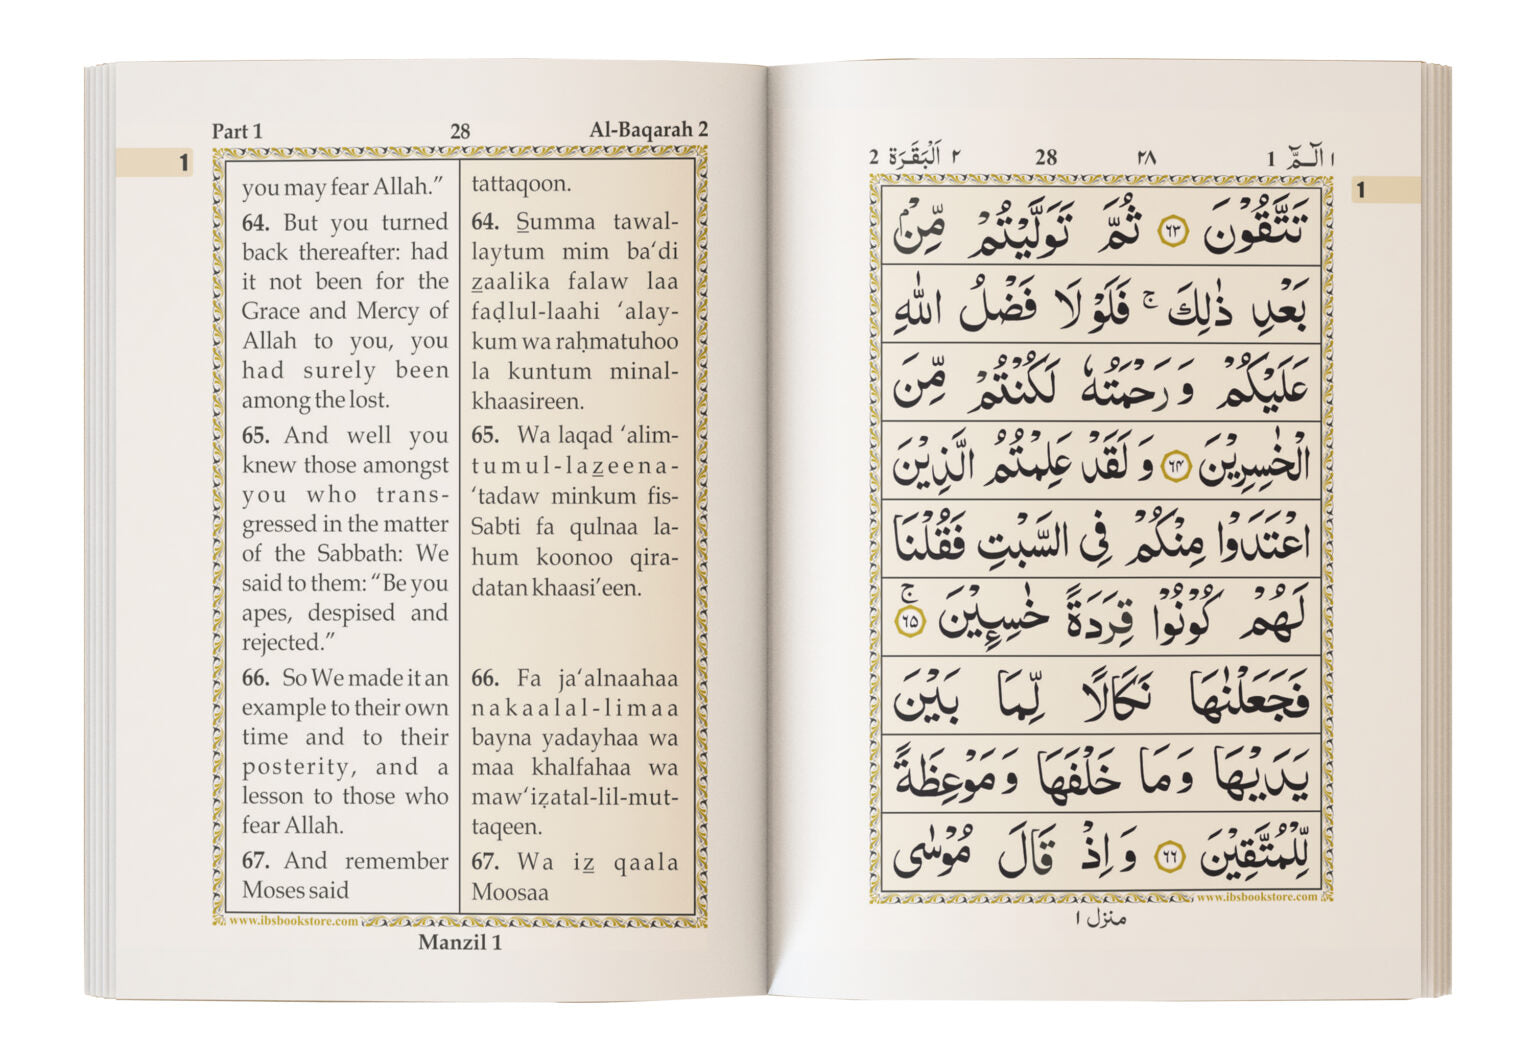 Part 1 28 Al-Baqarah 2
1
you may fear Allah.”
64. But you turned
back thereafter: had
it not been for the
Grace and Mercy of
Allah to you, you
had surely been
among the lost.
65. And well you
knew those amongst
you who trans-
gressed in the matter
of the Sabbath: We
said to them: “Be you
apes, despised and
rejected.”
66. So We made it an
example to their own
time and to their
posterity, and a
lesson to those who
fear Allah.
67. And remember
Moses said
tattaqoon.
64. Summa tawal-
laytum mim ba‘di
zaalika falaw laa
faḍlul-laahi ‘alay-
kum wa raḥmatuhoo
la kuntum minal-
khaasireen.
65. Wa laqad ‘alim-
tumul-lazeena-
‘tadaw minkum fis-
Sabti fa qulnaa la-
hum koonoo qira-
datan khaasi’een.
66. Fa ja‘alnaahaa
nakaalal-limaa
bayna yadayhaa wa
maa khalfahaa wa
maw‘iẓatal-lil-mut-
taqeen.
67. Wa iz qaala
Moosaa
www.ibsbookstore.com
Manzil 1
١ الٓـمّٓ 1 ٢٨ 28 ٢ اَلْبَقَرَة 2
1
تَتَّقُوْنَ ٦٣ ثُمَّ تَوَلَّيْتُمْ مِّنْۢ
بَعْدِ ذٰلِكَ ۚ فَلَوْ لَا فَضْلُ اللّٰهِ
عَلَيْكُمْ وَ رَحْمَتُهٗ لَكُنْتُمْ مِّنَ
الْخٰسِرِيْنَ ٦٤ وَ لَقَدْ عَلِمْتُمُ الَّذِيْنَ
اعْتَدَوْا مِنْكُمْ فِى السَّبْتِ فَقُلْنَا
لَهُمْ كُوْنُوْا قِرَدَةً خٰسِـِٕيْنَ ۚ ٦٥
فَجَعَلْنٰهَا نَكَالًا لِّمَا بَيْنَ
يَدَيْهَا وَ مَا خَلْفَهَا وَ مَوْعِظَةً
لِّلْمُتَّقِيْنَ ٦٦ وَ اِذْ قَالَ مُوْسٰى
www.ibsbookstore.com
منزل ١